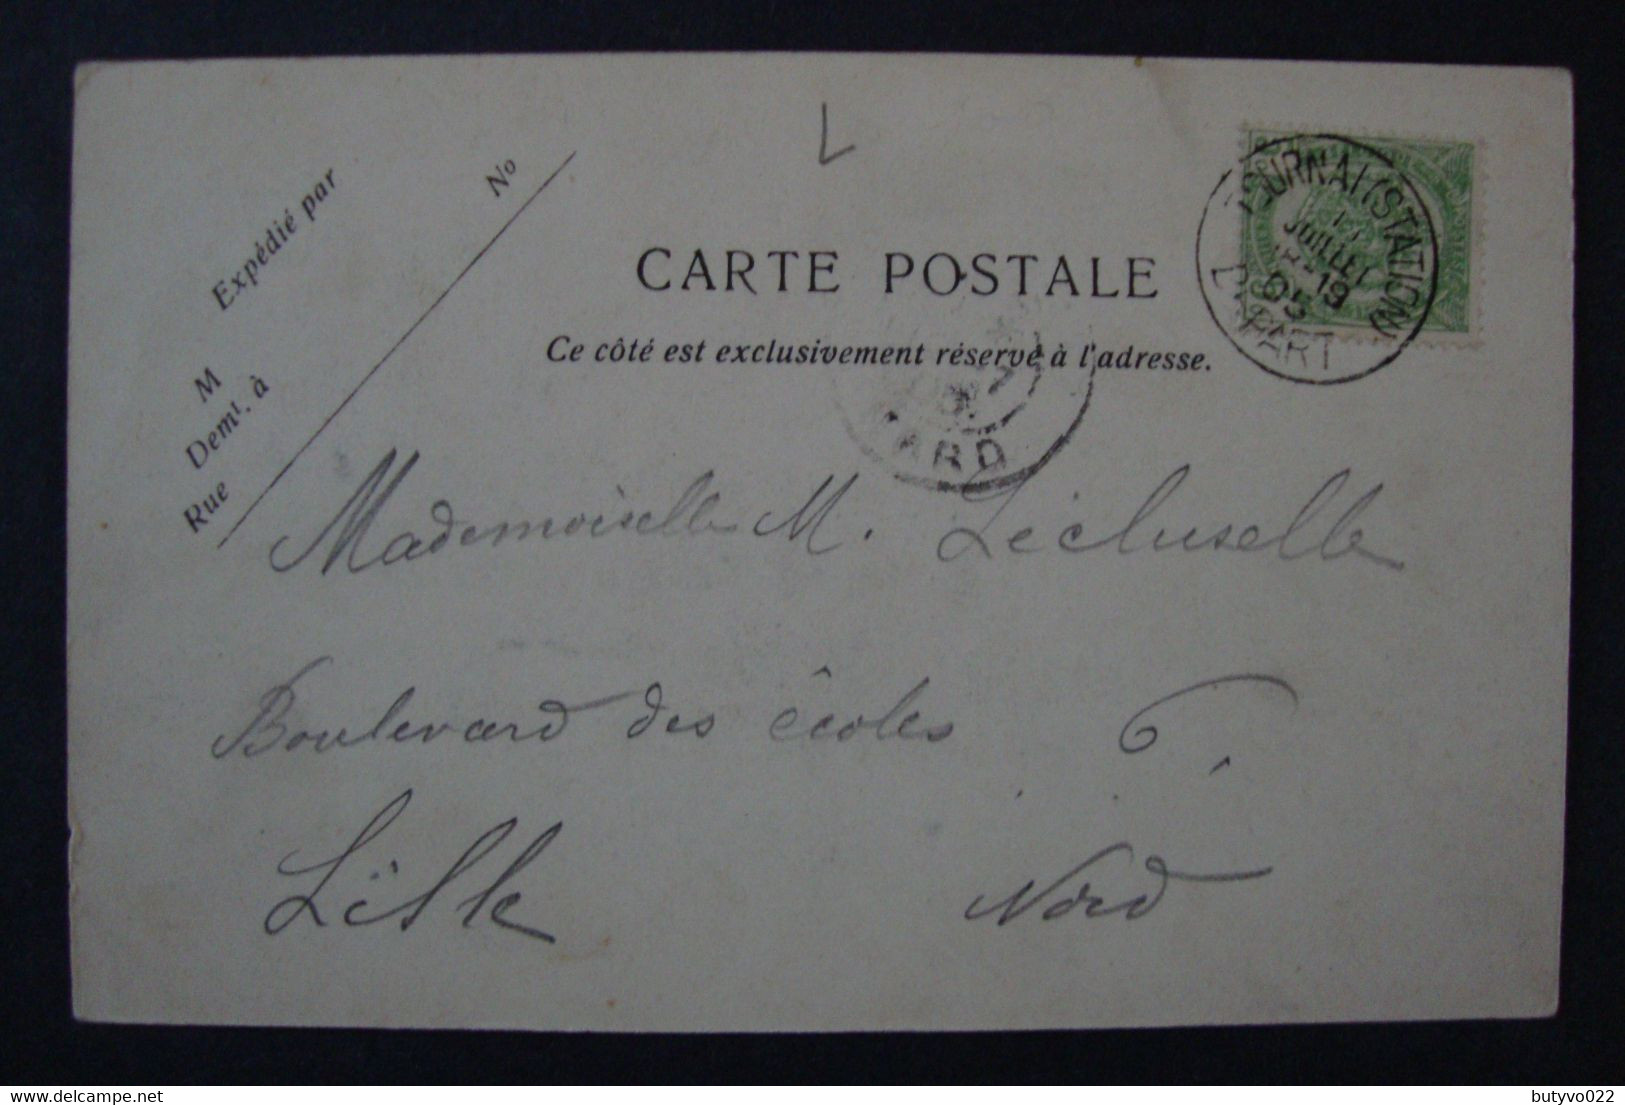 Expédié par
No
M
Demt. à
Rue
CARTE POSTALE
Ce côté est exclusivement réservé à l'adresse.
TOURNAI (STATION)
JUILLET
19
05
DÉPART
NORD
Mademoiselle M. Lécluselle
Boulevard des écoles 6.
Lille Nord
delcampe.net
butyvo022